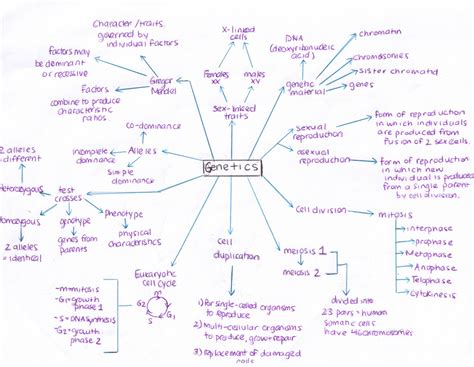 Character/traits
governed by
individual factors
factors may
be dominant
or recessive
Gregor
Mendel
Factors
combine to produce
characteristic
ratios.
X-linked
cells
Females
xx
males
xy
sex-linked
traits
DNA
(deoxyribonucleic
acid)
genetic
material
chromatin
chromosomes
sister chromatid
genes
co-dominance
incomplete
dominance
Alleles
simple
dominance
2 alleles
=different
Heterozygous
test
crosses
Homozygous
2 alleles
= identical
genotype
genes from
parents
Phenotype
physical
characteristics
Genetics
sexual
reproduction
Form of reproduction
in which individuals
are produced from
fusion of 2 sex cells.
asexual
reproduction
form of reproduction
in which new
individual is produced
from a single parent
by cell division.
cell division
mitosis
interphase
prophase
Metaphase
Anaphase
Telophase
Cytokinesis
meiosis 1
meiosis 2
divided into
23 pairs = human
somatic cells
have 46 chromosomes
cell
duplication
1) For single-celled organisms
to reproduce
2) multi-cellular organisms
to produce, grow + repair
3) replacement of damaged
Eukaryotic
cell cycle
M
G2
G1
S
-m=mitosis
-G1=growth
phase 1
-S=DNA synthesis
-G2=growth
phase 2